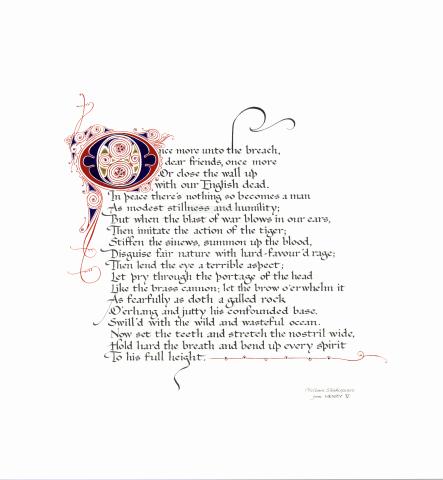 Once more unto the breach,
dear friends, once more
Or close the wall up
with our English dead.
In peace there's nothing so becomes a man
As modest stillness and humility;
But when the blast of war blows in our ears,
Then imitate the action of the tiger;
Stiffen the sinews, summon up the blood,
Disguise fair nature with hard-favour'd rage;
Then lend the eye a terrible aspect;
Let pry through the portage of the head
Like the brass cannon; let the brow o'erwhelm it
As fearfully as doth a galled rock
O'erhang and jutty his confounded base.
Swill'd with the wild and wasteful ocean.
Now set the teeth and stretch the nostril wide,
Hold hard the breath and bend up every spirit
To his full height.
William Shakespeare
from HENRY V